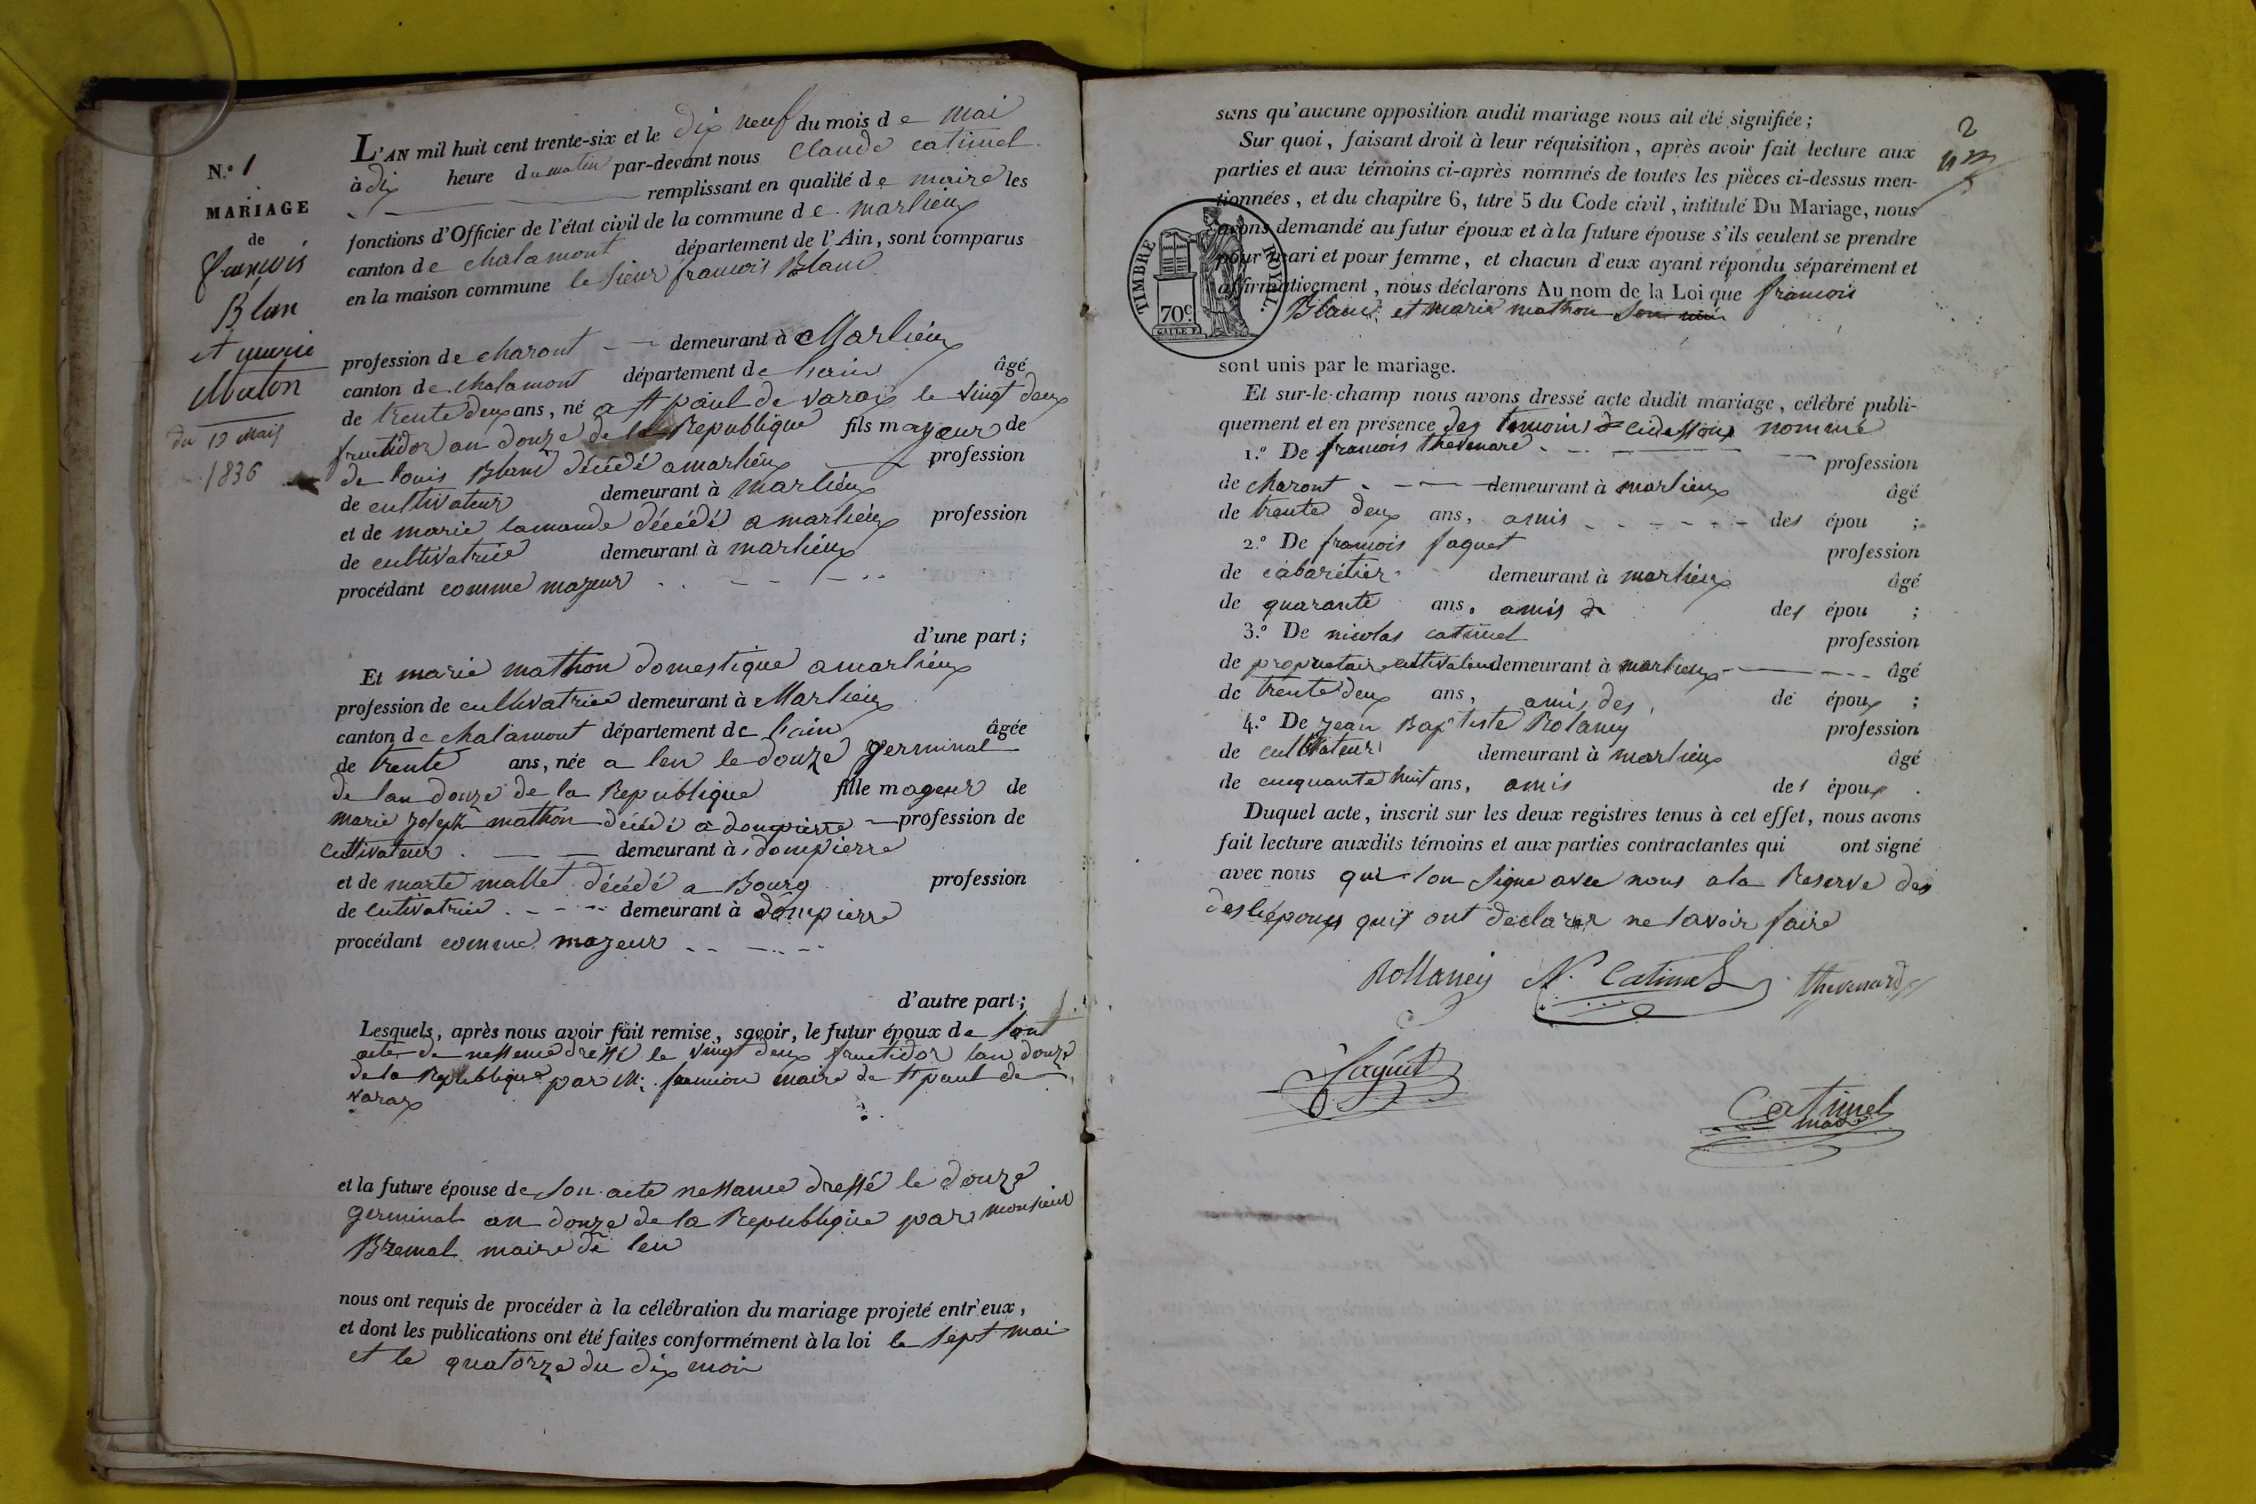 N.º 1
MARIAGE
de
françois
Blan
et marie
Muton
du 19 Mai
1836
L'AN mil huit cent trente-six et le dix neuf du mois de mai
à dix heure du matin par-devant nous Claude catimel
remplissant en qualité de maire les
fonctions d'Officier de l'état civil de la commune de marlieux
canton de chalamont département de l'Ain, sont comparus
en la maison commune le sieur francois Blanc
profession de charont demeurant à Marlieux
canton de chalamont département de lain âgé
de trente deux ans, né a st paul de varax le vingt deux
fructidor an douze de la Republique fils mageur de
de louis Blanc décédé a marlieux profession
de cultivateur demeurant à marlieux
et de marie lamande décédé a marlieux profession
de cultivatrice demeurant à marlieux
procédant comme mageur
d'une part;
Et marie mathon domestique a marlieux
profession de cultivatrice demeurant à Marlieux
canton de chalamont département de lain âgée
de trente ans, née a leu le douze germinal
de lan douze de la Republique fille mageur de
marie joseph mathon décédé a dompierre profession de
cultivateur demeurant à dompierre
et de marte mallet décédé a Bourg profession
de cutivatrice demeurant à dompierre
procédant comme mageur
d'autre part;
Lesquels, après nous avoir fait remise, savoir, le futur époux de son
acte de nessence dressé le vingt deux fructidor lan douze
de la Republique par M. maire de st paul de
varax
et la future épouse de son acte nessance dressé le douze
germinal an douze de la Republique par monsieur
maire de leu
nous ont requis de procéder à la célébration du mariage projeté entr'eux,
et dont les publications ont été faites conformément à la loi le sept mai
et le quatorze du dix moi
2
sans qu'aucune opposition audit mariage nous ait été signifiée;
Sur quoi, faisant droit à leur réquisition, après avoir fait lecture aux
parties et aux témoins ci-après nommés de toutes les pièces ci-dessus men-
tionnées, et du chapitre 6, titre 5 du Code civil, intitulé Du Mariage, nous
avons demandé au futur époux et à la future épouse s'ils veulent se prendre
pour mari et pour femme, et chacun d'eux ayant répondu séparément et
affirmativement, nous déclarons Au nom de la Loi que francois
Blanc et marie mathon son
TIMBRE ROYAL.
70c.
sont unis par le mariage.
Et sur-le-champ nous avons dressé acte dudit mariage, célébré publi-
quement et en présence des temoins cidessous nommé
1.º De francois thevenard profession
de charont demeurant à marlieux âgé
de trente deux ans, amis des épou ;
2.º De francois faquet profession
de cabarétier demeurant à marlieux âgé
de quarante ans, amis des épou ;
3.º De nicolas catimel profession
de propriétaire cultivateur demeurant à marlieux âgé
de trente deux ans, amis des de époux ;
4.º De jean Baptiste Rolancy profession
de cultivateur demeurant à marlieux âgé
de cinquante huit ans, amis des époux .
Duquel acte, inscrit sur les deux registres tenus à cet effet, nous avons
fait lecture auxdits témoins et aux parties contractantes qui ont signé
avec nous qui lon signe avec nous a la Reserve des
époux quis ont declarer ne savoir faire
Rollancy N. Catimel thevenard
faquet
Catimel
maire